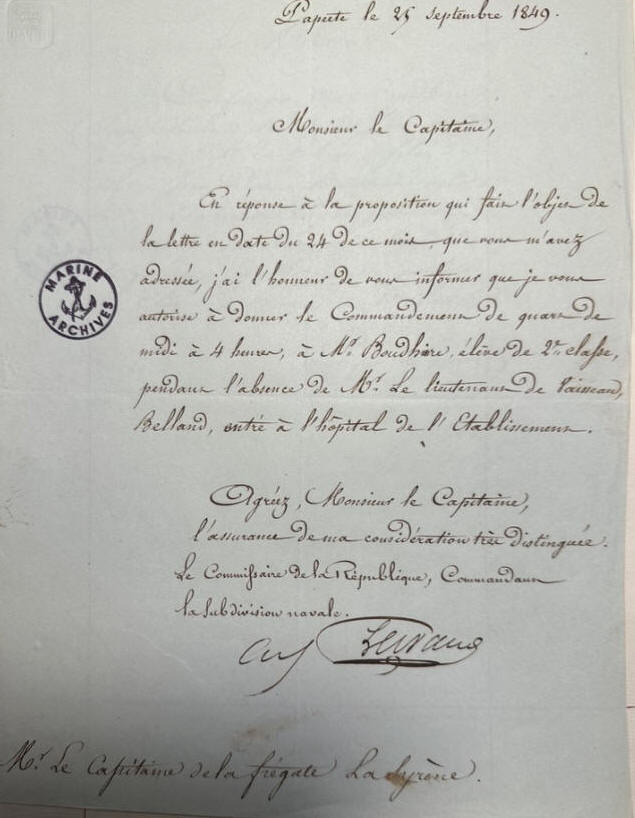 Papeete le 25 septembre 1849.
Monsieur le Capitaine,
En réponse à la proposition qui fait l'objet de
la lettre en date du 24 de ce mois que vous m'avez
adressée, j'ai l'honneur de vous informer que je vous
autorise à donner le Commandement de quart de
midi à 4 heures, à Mr. Boudhière, élève de 2e. classe,
pendant l'absence de Mr. Le lieutenant de Vaisseau,
Belland, entré à l'hôpital de l'Etablissement.
MARINE
ARCHIVES
Agréez, Monsieur le Capitaine,
l'assurance de ma considération très distinguée.
Le Commissaire de la République, Commandant
la subdivision navale.
Mr. Le Capitaine de la frégate La Syrène.